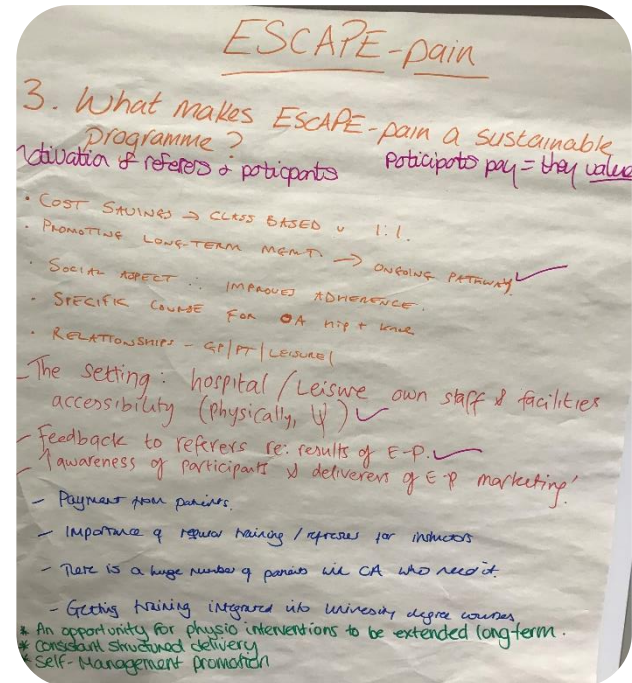 ESCAPE-pain
3. What makes ESCAPE-pain a sustainable
programme?
Motivation of referers & poticipants
Poticipats pay = they value
• COST SAVINGS → CLASS BASED v 1:1.
• PROMOTING LONG-TERM MGMT. → ONGOING PATHWAY ✓
• SOCIAL ASPECT ∴ IMPROVES ADHERENCE.
• SPECIFIC COURSE FOR OA hip + knee
• RELATIONSHIPS - GP/PT/LEISURE/
- The setting: hospital / Leisure own staff & facilities
accessibility (physically, Ψ) ✓
- Feedback to referers re: results of E-P. ✓
- ↑ awareness of participants & deliverers of E-P marketing!
- Payment from patients.
- Importance of regular training / refresher for instructors
- There is a huge number of patients with OA who need it.
- Getting training integrated into university degree courses
* An opportunity for physio interventions to be extended long-term.
* Consistant structured delivery
* Self-Management promotion